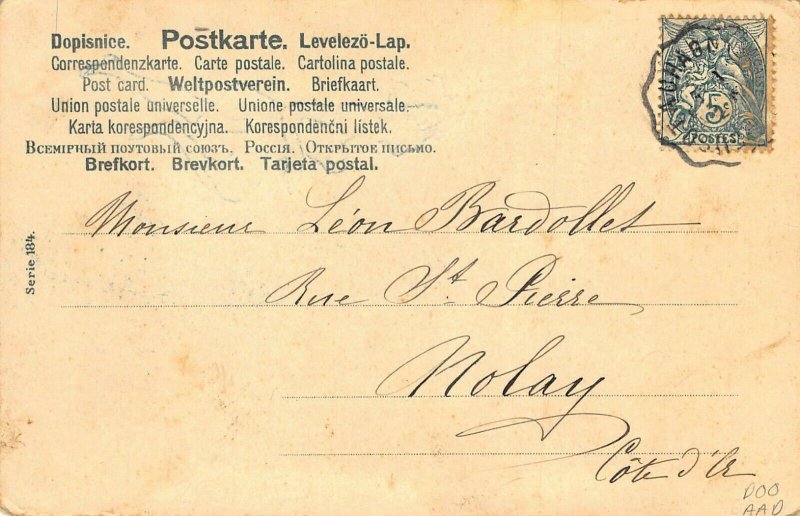 Dopisnice. Postkarte. Levelezö-Lap.
Correspondenzkarte. Carte postale. Cartolina postale.
Post card. Weltpostverein. Briefkaart.
Union postale universelle. Unione postale universale.
Karta korespondencyjna. Korespondenční lístek.
Всемірный поутовый союзъ. Россія. Открытое письмо.
Brefkort. Brevkort. Tarjeta postal.
5c
POSTES
Serie 184.
Monsieur Léon Bardollet
Rue St. Pierre
Nolay
Côte d'Or
DOO
AAD